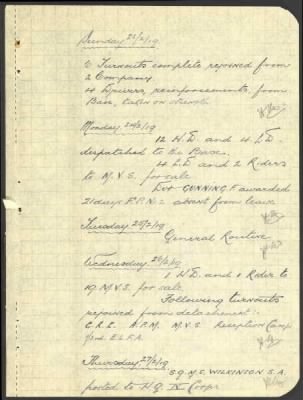 Sunday 23/2/19
6 Turnouts complete rejoined from
2 Company
4 Drivers, reinforcements, from
Base, taken on strength
Monday 24/2/19
12 H.D. and 4 L.D
despatched to the Base.
4 L.D and 2 Riders
to M.V.S. for sale
Dvr GUNNING F. awarded
21 days F.P. No 2 absent from leave
Tuesday 25/2/19
General Routine
Wednesday 26/2/19
1 H.D. and 1 Rider to
19 M.V.S. for sale.
Following turnouts
rejoined from detachment:-
C.R.E. A.P.M. M.V.S. Reception Camp
Thursday 27/2/19
WILKINSON S.A.
posted to HQ IV Corps